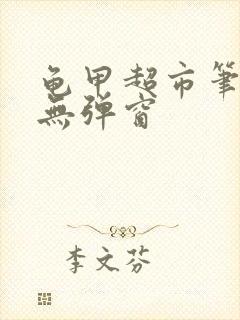 龟甲超市筆
無弹窗
李文芬